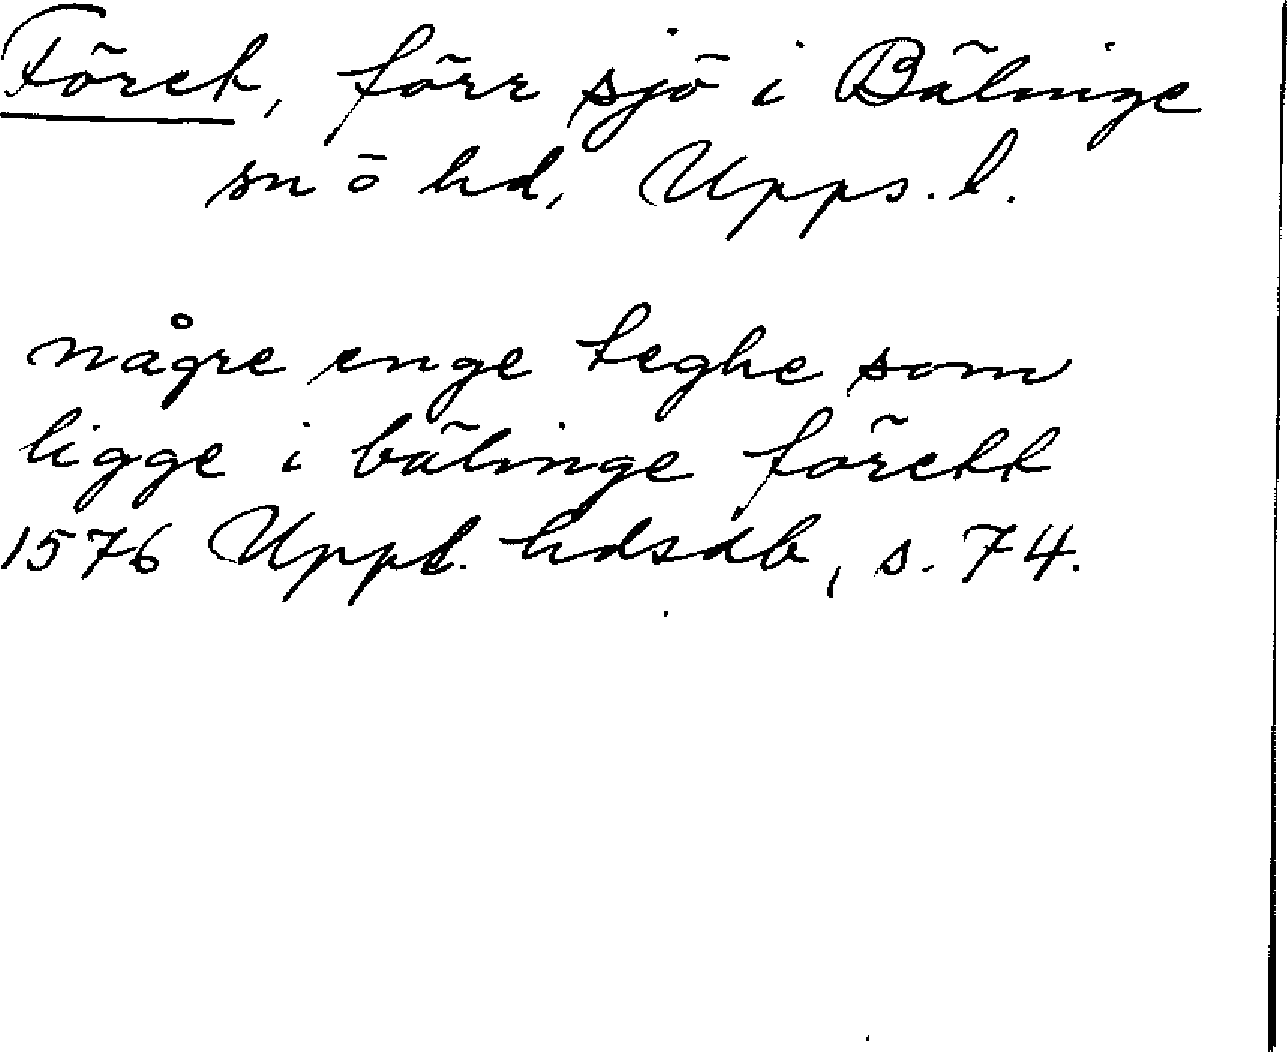 Föret, förr sjö i Bälinge
sn ö hd, Upps. l.
någre enge teghe som
ligge i bälinge förett
1576 Uppl. hdsdb, s. 74.